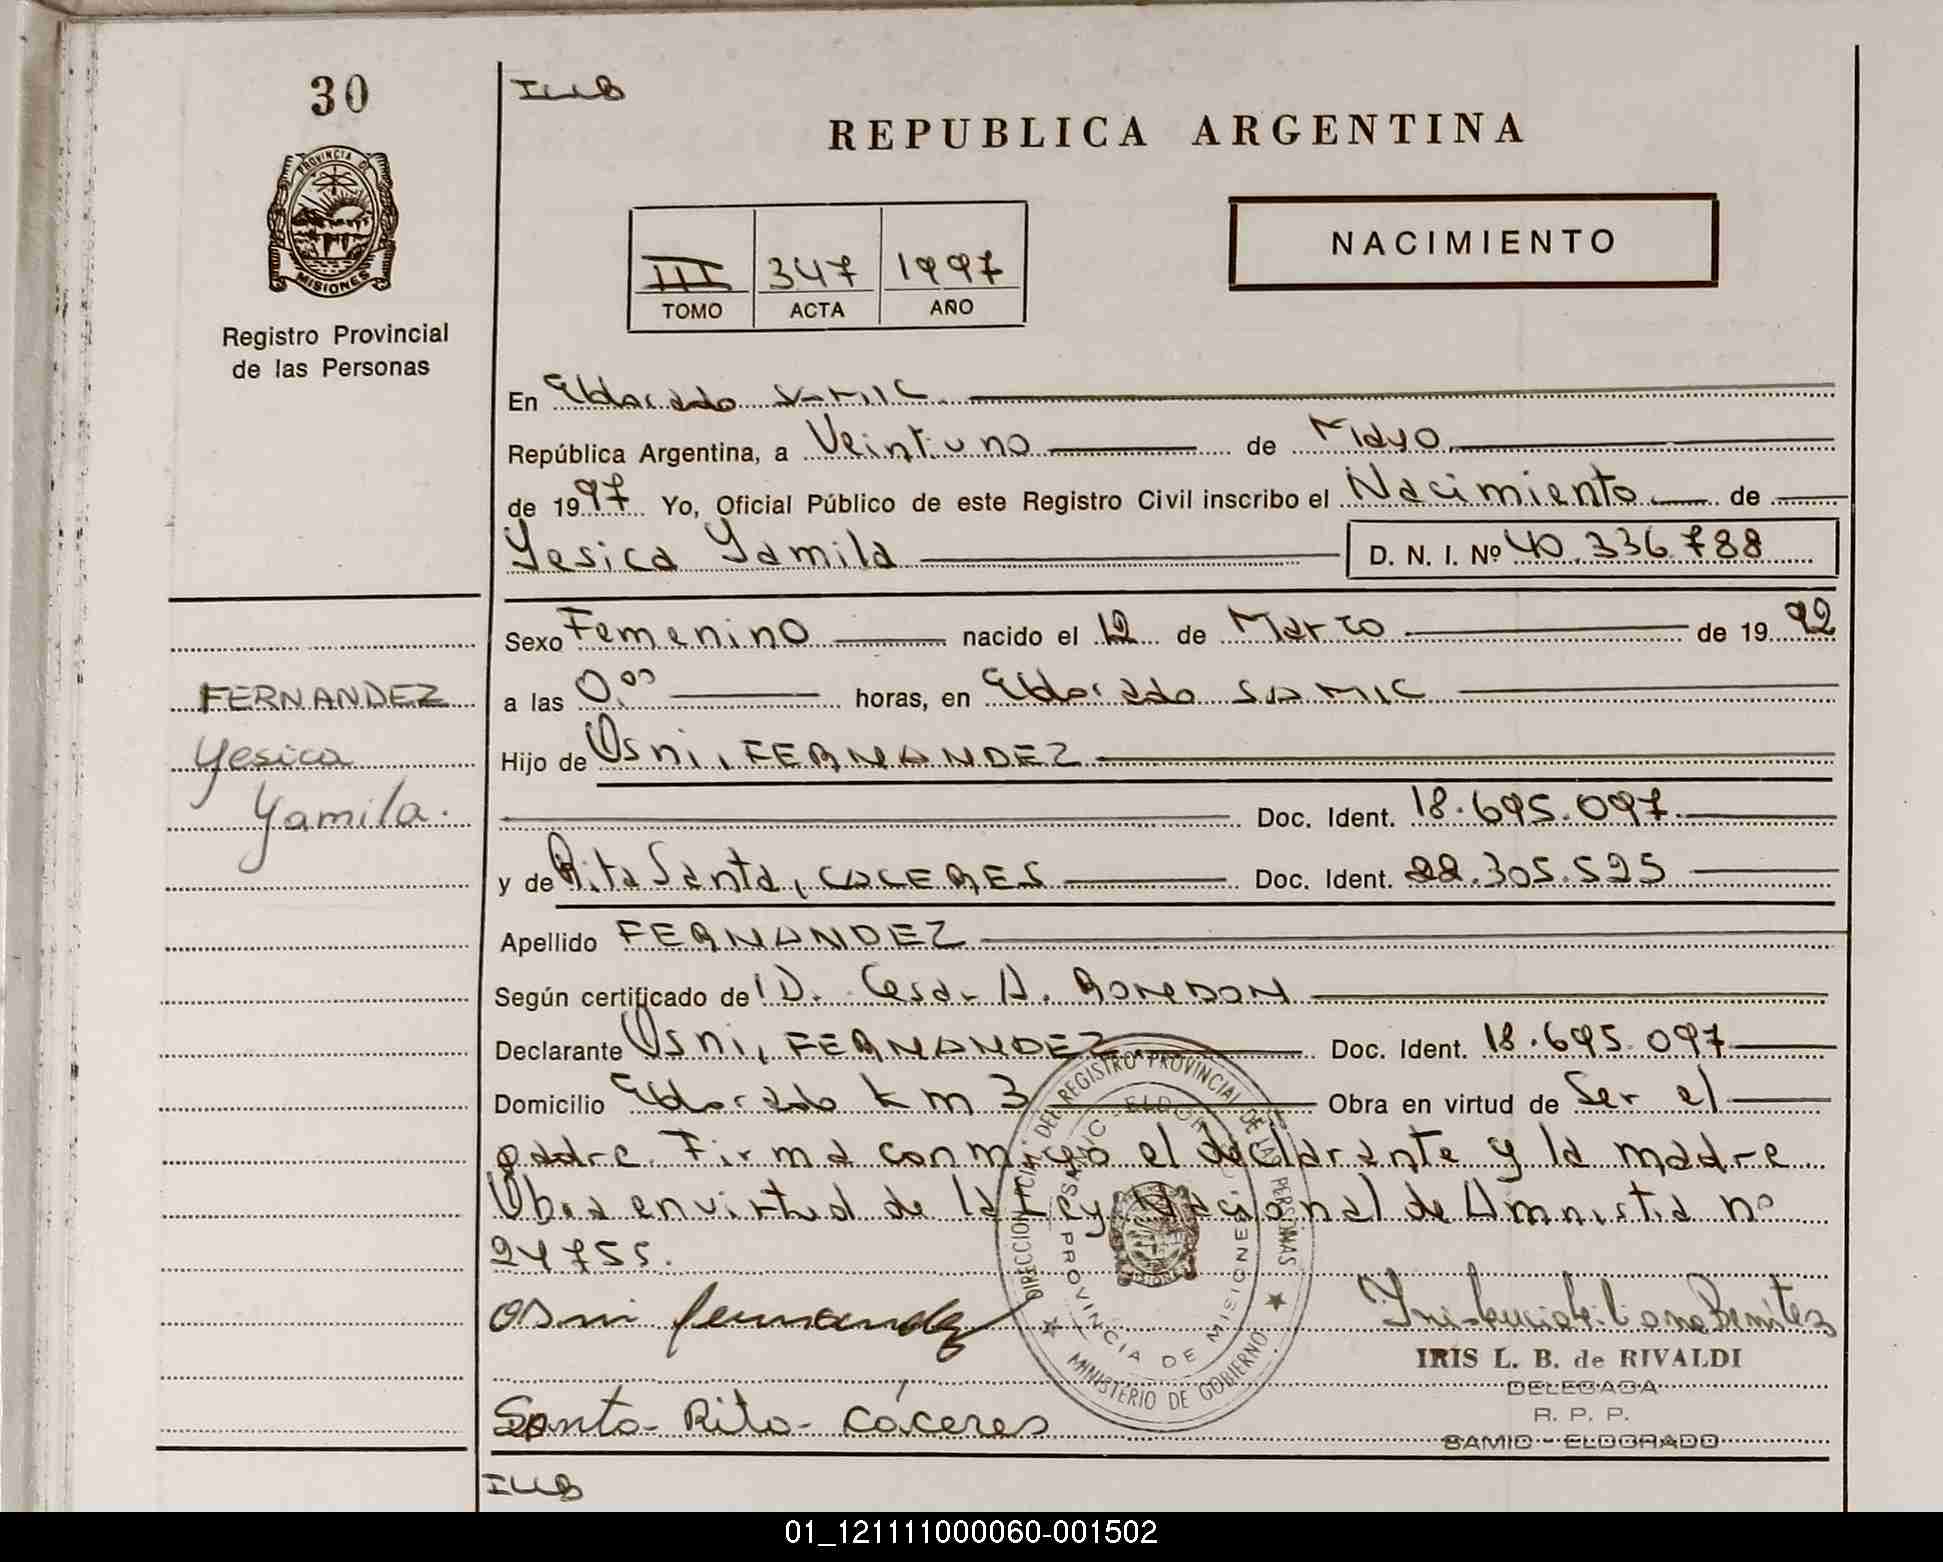 30
ILLB
REPUBLICA ARGENTINA
PROVINCIA D
MISIONES
Registro Provincial
de las Personas
III 347 1997
TOMO ACTA AÑO
NACIMIENTO
En Eldorado SAMIC
República Argentina, a Veintiuno de Mayo
de 1997 Yo, Oficial Público de este Registro Civil inscribo el Nacimiento de
Yesica Yamila D. N. I. Nº 40.336.788
Sexo Femenino nacido el 12 de Marzo de 1992
FERNANDEZ
Yesica
Yamila.
a las 0,00 horas, en Eldorado SAMIC
Hijo de Osni, FERNANDEZ
Doc. Ident. 18.695.097
y de Rita Santa, CACERES Doc. Ident. 22.305.525
Apellido FERNANDEZ
Según certificado de D. Cesar A. RONDON
Declarante Osni, FERNANDEZ Doc. Ident. 18.695.097
Domicilio Eldorado km 3 Obra en virtud de Ser el
padre. Firma conmigo el declarante y la madre
Obra en virtud de la Ley Nacional de Amnistia nº
24755.
DIRECCION DEL REGISTRO PROVINCIAL DE LAS PERSONAS
MINISTERIO DE GOBIERNO
SAMIC - ELDORADO
PROVINCIA DE MISIONES
Osni fernandez
IRIS L. B. de RIVALDI
DELEGADA
R. P. P.
SAMIC - ELDORADO
Santa Rita Cáceres
ILLB
01_121111000060-001502